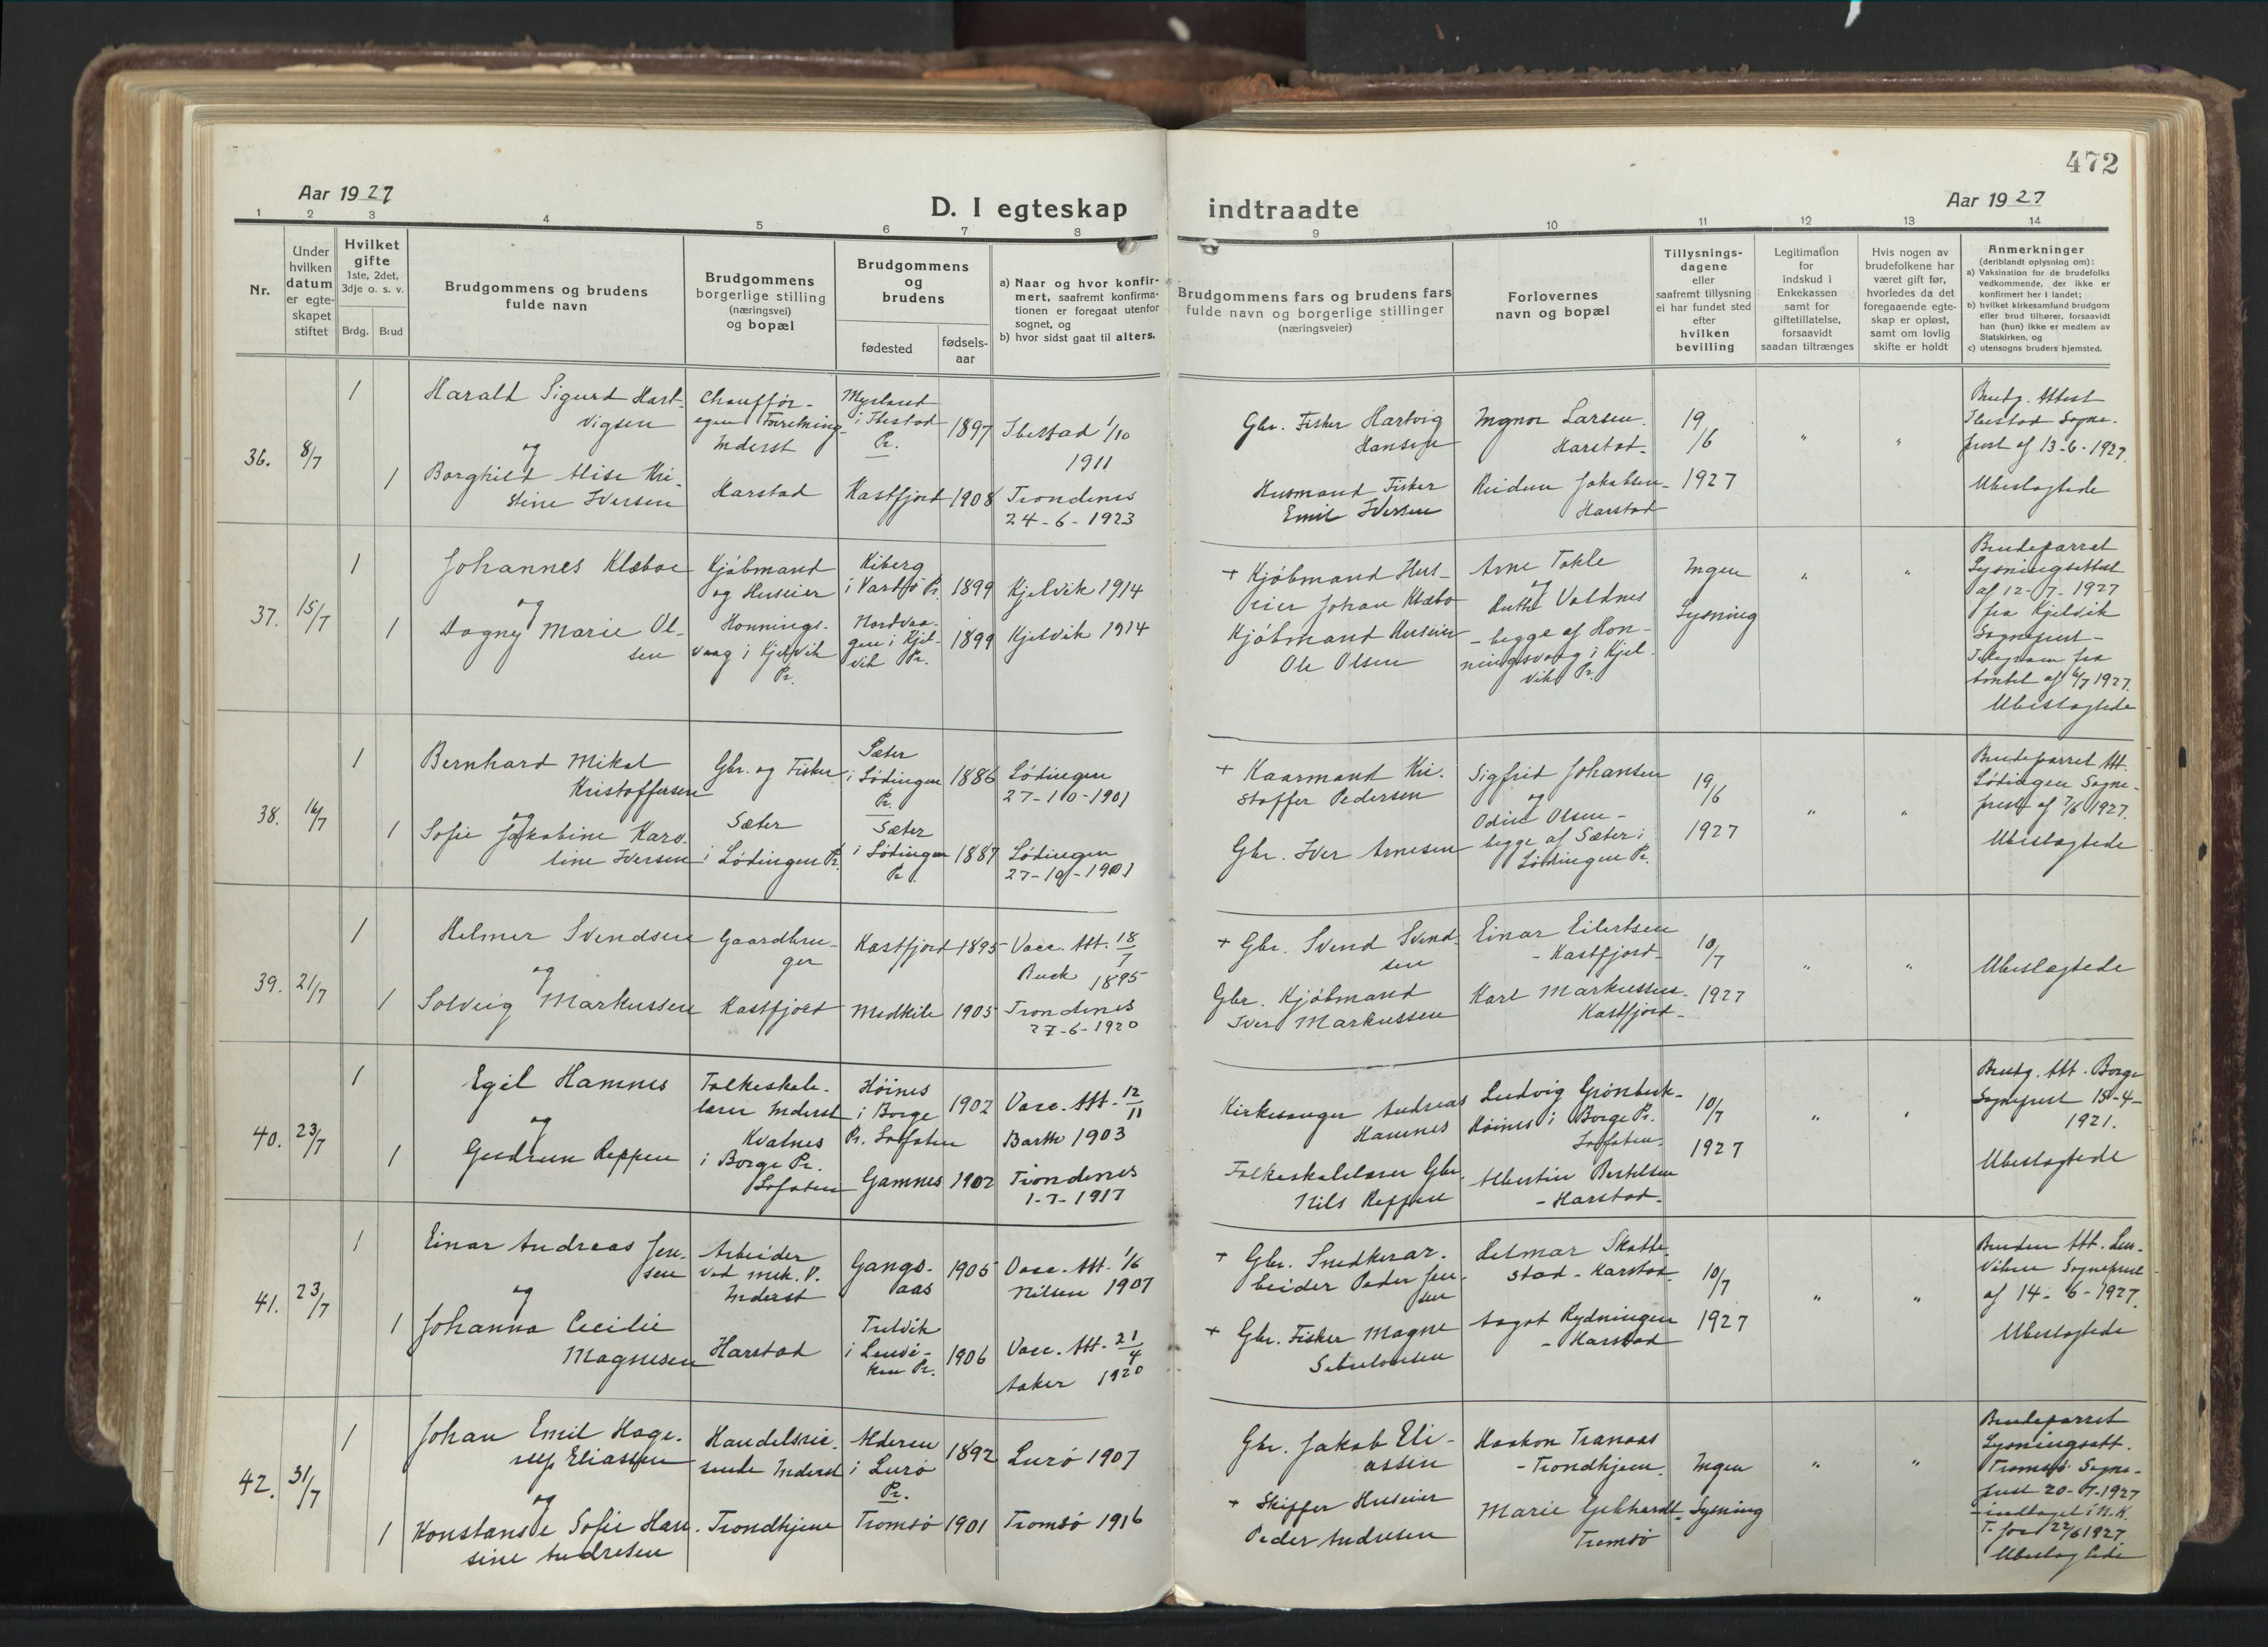 472
Aar 1927
Aar 1927
D. I egteskap indtraadte
1 2 3 4 5 6 7 8 9 10 11 12 13 14
Nr.
Under hvilken datum er egte-skapet stiftet
Hvilket gifte
1ste, 2det, 3dje o. s. v.
Brdg. Brud
Brudgommens og brudens fulde navn
Brudgommens borgerlige stilling (næringsvei) og bopæl
Brudgommens og brudens
fødested
fødsels-aar
a) Naar og hvor konfir-mert, saafremt konfirma-tionen er foregaat utenfor sognet, og
b) hvor sidst gaat til alters.
Brudgommens fars og brudens fars fulde navn og borgerlige stillinger (næringsveier)
Forlovernes navn og bopæl
Tillysnings-dagene eller saafremt tillysning ei har fundet sted efter hvilken bevilling
Legitimation for indskud i Enkekassen samt for giftetillatelse, forsaavidt saadan tiltrænges
Hvis nogen av brudefolkene har været gift før, hvorledes da det foregaaende egte-skap er opløst, samt om lovlig skifte er holdt
Anmerkninger
(deriblandt oplysning om):
a) Vaksination for de brudefolks vedkommende, der ikke er konfirmert her i landet;
b) hvilket kirkesamfund brudgom eller brud tilhører, forsaavidt han (hun) ikke er medlem av Statskirken, og
c) utensogns bruders hjemsted.
36. 8/7
1
Harald Sigurd Hart-
vigsen
og
1
Borghild Alise Kri-
stine Iversen
Chauffør-
egen Forretning-
Inderst
Harstad
Myrland
i Ibestad
Pr.
1897
Kastfjord 1908
Ibestad 1/10
1911
Trondenes
24-6-1923
Gbr. Fisker Hartvig
Hansen
Husmand Fisker
Emil Iversen
Ingvor Larsen
Harstad-
Reidun Jakobsen-
Harstad
19/6
1927
" "
Brudg. Attest
Ibestad Sogne-
prest af 13-6-1927.
Ubeslægtede
37. 15/7
1
Johannes Klæboe
og
1
Dagny Marie Ol-
sen
Kjøbmand
og Huseier
Honnings-
vaag i Kjelvik
Pr.
Kiberg
i Vardø Pr. 1899
Nordvaa-
gen i Kjel-
vik Pr.
1899
Kjelvik 1914
Kjelvik 1914
+ Kjøbmand Hus-
eier Johan Klæbo
Kjøbmand Huseier
Ole Olsen
Arne Tokle
og
Ruth Valdnes
- begge af Hon-
ningsvaag i Kjel-
vik Pr.
Ingen
Lysning
" "
Brudeparret
Lysningsattest
af 12-7-1927
fra Kjelvik
Sogneprest-
Telegram fra
af 1927.
Ubeslægtede
38. 16/7
1
Bernhard Mikal
Kristoffersen
og
1
Sofie Jakobine Karo-
line Iversen
Gbr. og Fisker
Sæter
i Lødingen Pr.
Sæter
i Lødingen
Pr.
1886
Sæter
i Lødingen
Pr.
1887
Lødingen
27-10-1901
Lødingen
27-10-1901
+ Kaarmand Kri-
stoffer Pedersen
Gbr. Iver Arnesen
Sigfrid Johansen
og
Odin Olsen-
begge af Sæter i
Lødingen Pr.
19/6
1927
" "
Brudeparret Att.
Lødingen Sogne-
prest af 7/6 1927.
Ubeslægtede
39. 21/7
1
Helmer Svendsen
og
1
Solveig Markussen
Gaardbru-
ger
Kastfjord
Kastfjord 1895
Medkile 1905
Vacc. Att. 18/7
Buck 1895
Trondenes
27-6-1920
+ Gbr. Svend Svend-
sen
Gbr. Kjøbmand
Iver Markussen
Einar Eilertsen
- Kastfjord-
Karl Markussen-
Kastfjord-
10/7
1927
" "
Ubeslægtede
40. 23/7
1
Egil Hamnes
og
1
Gudrun Reppen
Folkeskole-
lærer Inderst
Kvalnes
i Borge Pr.
Lofoten
Høines
i Borge
Pr. Lofoten
1902
Gamnes 1902
Vacc. Att. 12/11
Barth 1903
Trondenes
1-7-1917
Kirkesanger Andreas
Hamnes
Folkeskolelærer Gbr.
Nils Reppen
Ludvig Grønbeck-
Høines i Borge Pr.
Lofoten-
Albertine Bertelsen
- Harstad-
10/7
1927
" "
Brudg. Att. Borge
Sogneprest 15-4-
1921.
Ubeslægtede
41. 23/7
1
Einar Andreas Jen-
sen
og
1
Johanna Cecilie
Magnusen
Arbeider
ved mek. V.
Inderst
Harstad
Gangs-
aas
1905
Trelvik
i Lenvi-
ken Pr.
1906
Vacc. Att. 1/6
Nilsen 1907
Vacc. Att. 21/4
Aaker 1920
+ Gbr. Snedkerar-
beider Peder Jen-
sen
+ Gbr. Fisker Magne
Helmar Skatte-
stad - Harstad-
Aagot Rydningen
- Harstad
10/7
1927
" "
Bruden Att. Len-
viken Sogneprest
af 14-6-1927.
Ubeslægtede
42. 31/7
1
Johan Emil Hage-
rup Eliassen
og
1
Konstanse Sofie Han-
sine Andresen
Handelsrei-
sende Inderst
Trondhjem
Alderen
i Lurø
Pr.
1892
Tromsø 1901
Lurø 1907
Tromsø 1916
Gbr. Jakob Eli-
assen
+ Skipper Huseier
Peder Andresen
Haakon Tranaas
- Trondhjem.
Marie Gebhardt-
Tromsø
Ingen
Lysning
" "
Brudeparret
Lysningsatt.
Tromsø Sogne-
prest 20-7-1927
- indtaget i N.K.
T. for 22/6 1927
Ubeslægtede